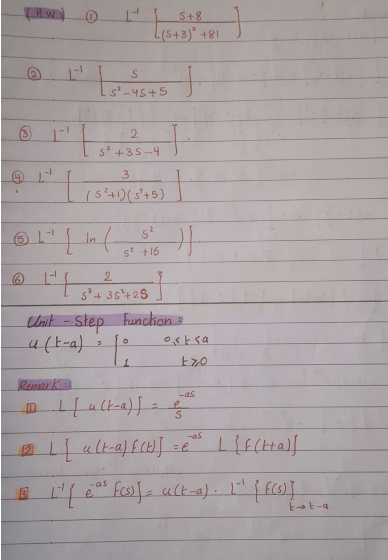 (H.W) ① L⁻¹ [ s+8 / (s+3)² + 81 ]
② L⁻¹ [ s / s² - 4s + 5 ]
③ L⁻¹ [ 2 / s² + 3s - 4 ]
④ L⁻¹ [ 3 / (s²+1)(s²+5) ]
⑤ L⁻¹ [ ln ( s² / s² + 16 ) ]
⑥ L⁻¹ [ 2 / s³ + 3s² + 2s ]
Unit - Step Function :
u(t-a) = [ 0 0≤t≤a
1 t≥0
Remark :
1 L [ u(t-a) ] = e^-as / s
2 L [ u(t-a) f(t) ] = e^-as L { f(t+a) ]
3 L⁻¹ { e^-as f(s) ] = u(t-a) . L⁻¹ { f(s) ]
t→t-a